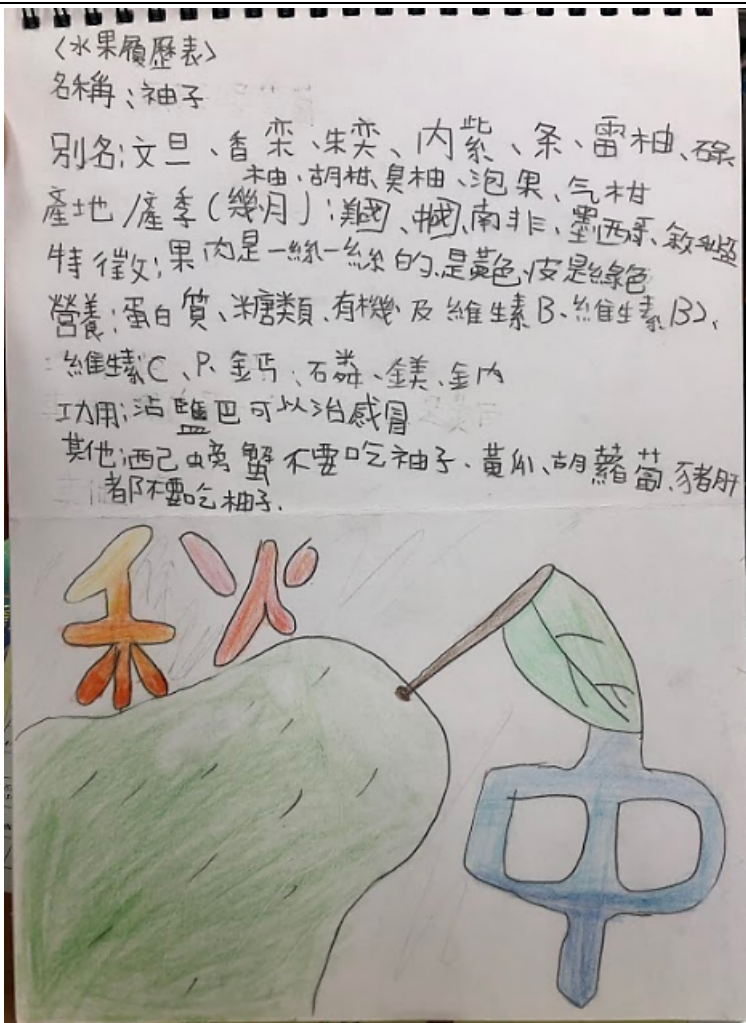 〈水果履歷表〉
名稱:袖子
別名:文旦、香栾、朱奕、內紫、条、雷柚、碌
柚、胡柑、臭柚、泡果、气柑
產地/產季(幾月):美國、中國、南非、墨西哥、敘利亞
特徵:果肉是一絲一絲的、是黃色、皮是綠色
營養:蛋白質、糖類、有機及維生素B、維生素B2、
維生素C、P、鈣、石粦、鎂、金內
功用:沾鹽巴可以治感冒
其他:酒己螃蟹不要吃袖子、黃瓜、胡蘿蔔、豬肝
都不要吃柚子.
秋
中